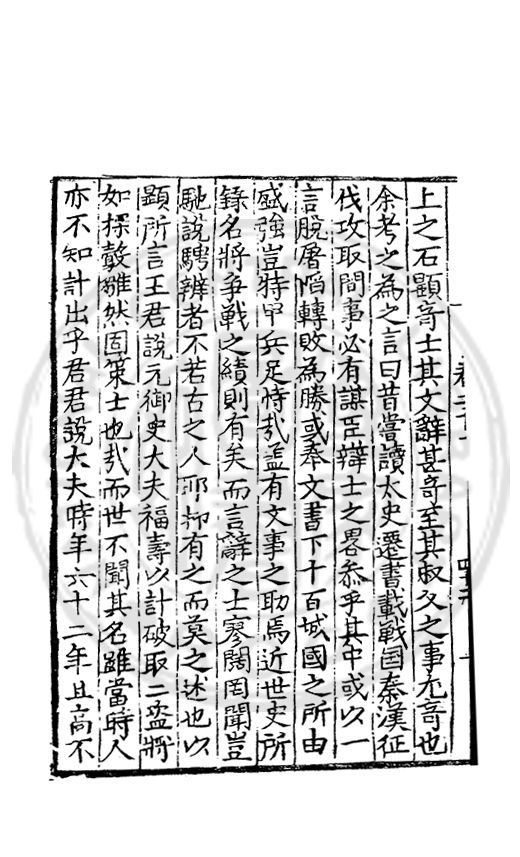 上之石顯奇士其文辭甚奇至其叙父之事尤奇也
余考之為之言曰昔嘗讀太史遷書載戰囯秦漢征
伐攻取間事必有謀臣辯士之畧叅乎其中或以一
言脫屠陷轉敗為勝或奉文書下十百城國之所由
盛強豈特甲兵足恃㢤盖有文事之助焉近世史所
錄名將爭戰之績則有矣而言辭之士寥闊罔聞豈
馳說騁辨者不若古之人耶抑有之而莫之述也以
顯所言王君說元御史大夫福壽以計破取二盗將
如探鷇雛然固策士也㢤而世不聞其名雖當時人
亦不知計出乎君君說大夫時年六十二年且高不